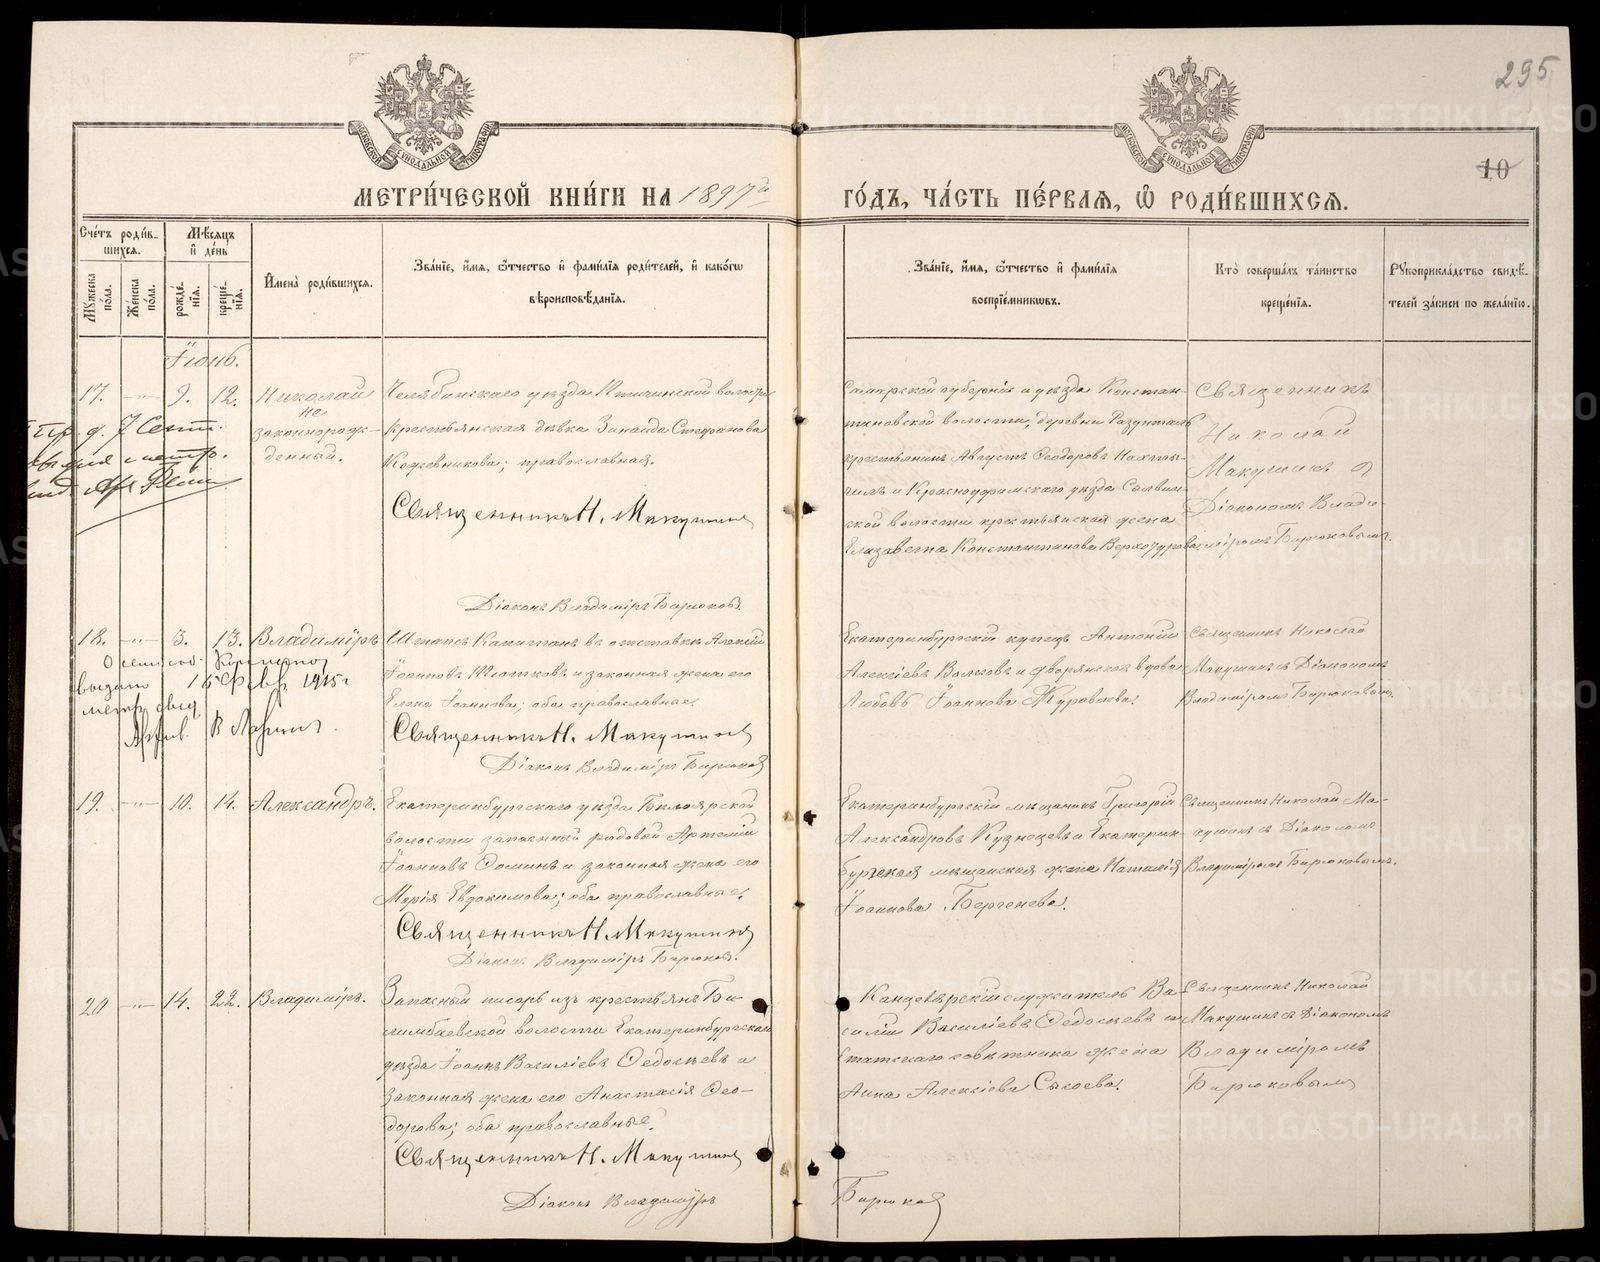 295
10
МЕТРИ́ЧЕСКОЙ КНИ́ГИ НА 1897й ГО́ДЪ, ЧА́СТЬ ПЕ́РВАѦ, Ѡ҆ РОДИ́ВШИХСѦ.
Сче́тъ роди́в-
шихсѧ.
Мѣ́сѧцъ
и҆ де́нь
Мꙋ́жеска
по́ла.
Же́нска
по́ла.
рожде́-
нїѧ.
креще́-
нїѧ.
И҆мена̀ роди́вшихсѧ.
Зва́нїе, и҆́мѧ, ѻ҆́тчество и҆ фамі́лїѧ роди́телей, и҆ како́гѡ
вѣроисповѣ́данїѧ.
Зва́нїе, и҆́мѧ, ѻ҆́тчество и҆ фамі́лїѧ
воспрїе́мникѡвъ.
Кто̀ соверша́лъ та́инство
креще́нїѧ.
Рꙋкоприкла́дство свидѣ́-
телей за́писи по жела́нїю.
Іюнь.
17. —"— 9. 12. Николай
не
законнорож-
денный.
Челябинскаго уѣзда Птичинской волости
крестьянская дѣвка Зинаида Стефанова
Кожевникова; православная.
Священникъ Н. Макушинъ
Діаконъ Владиміръ Бирюковъ
Самарской губерніи и уѣзда Констан-
тиновской волости, деревни
крестьянинъ Августъ Ѳеодоровъ
и Красноуфимскаго уѣзда
ской волости крестьянская жена
Елизавета Константинова
Священникъ
Николай
Макушинъ с
Діакономъ Влади-
міромъ Бирюковымъ.
18. —"— 3. 13. Владиміръ
выдано 15 Февр 1915 г
метр. свид.
Штабсъ Капитанъ въ отставкѣ Алексій
Іоанновъ и законная жена его
Елена Іоаннова; оба православные.
Священникъ Н. Макушинъ
Діаконъ Владиміръ Бирюковъ
Екатеринбургскій купецъ Антоній
Алексіевъ Волковъ и дворянская вдова
Любовь Іоаннова Журавлева.
Священникъ Николай
Макушинъ съ Діакономъ
Владиміромъ Бирюковымъ.
19. —"— 10. 14. Александръ.
Екатеринбургскаго уѣзда Бѣлоярской
волости запасный рядовой Артемій
Іоанновъ Ѳоминъ и законная жена его
Марія Евдокимова; оба православные.
Священникъ Н. Макушинъ
Діаконъ Владиміръ Бирюковъ.
Екатеринбургскій мѣщанинъ Григорій
Александровъ Кузнецовъ и Екатерин-
бургская мѣщанская жена Наталія
Іоаннова Бергенева.
Священникъ Николай Ма-
кушинъ съ Діакономъ
Владиміромъ Бирюковымъ.
20 —"— 14. 22. Владиміръ.
Запасный писарь изъ крестьянъ Би-
лимбаевской волости Екатеринбургскаго
уѣзда Іоаннъ Василіевъ Ѳедосѣевъ и
законная жена его Анастасія Ѳео-
дорова; оба православные.
Священникъ Н. Макушинъ
Діаконъ Владиміръ Бирюковъ
Канцелярскій служитель Ва-
силій Василіевъ Ѳедосѣевъ и
Статскаго совѣтника жена
Анна Алексіева Сысоева.
Священникъ Николай
Макушинъ съ Діакономъ
Владиміромъ
Бирюковымъ
METRIKI.GASO-URAL.RU